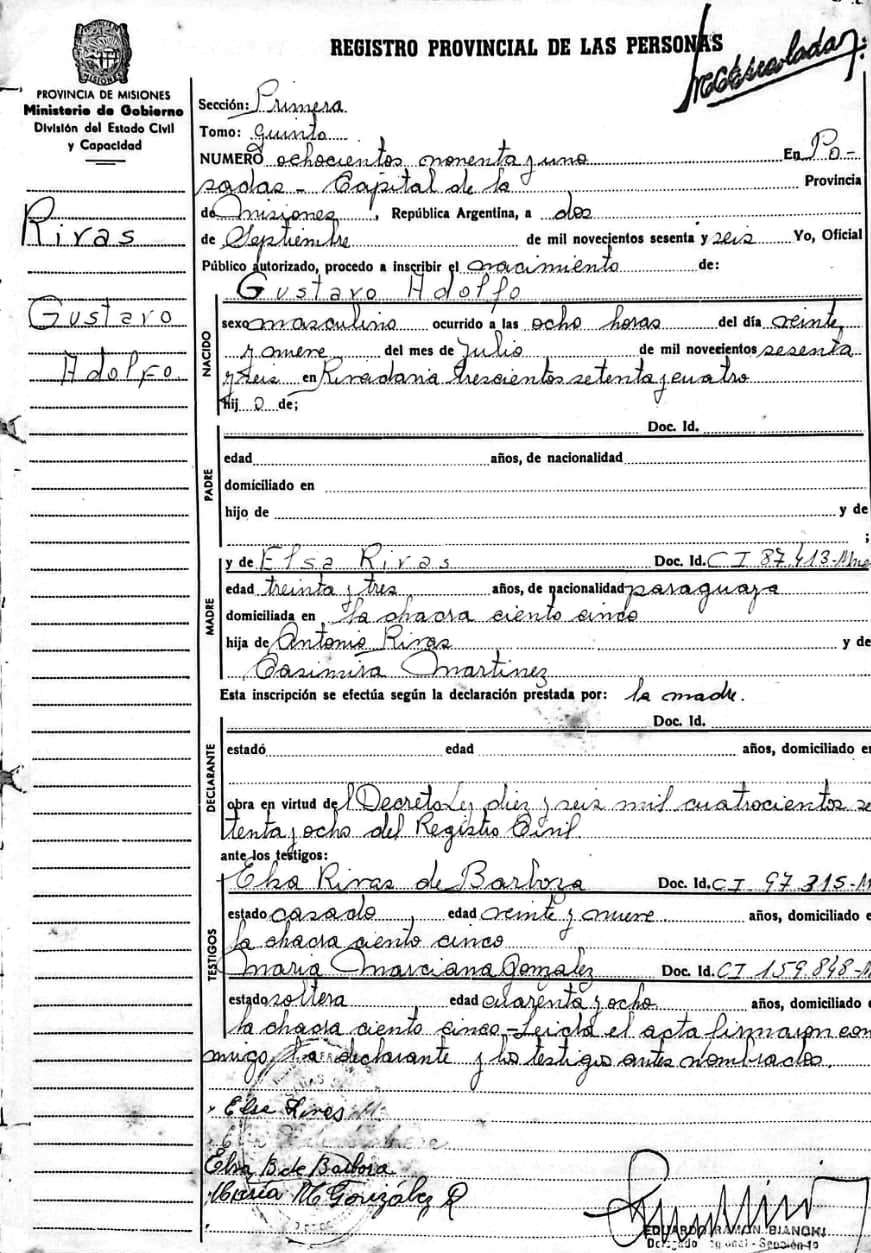 REGISTRO PROVINCIAL DE LAS PERSONAS
PROVINCIA DE MISIONES
Ministerio de Gobierno
División del Estado Civil
y Capacidad
Rivas
Gustavo
Adolfo
Sección: Primera
Tomo: Quinto
NUMERO ochocientos noventa y uno En Po-
sadas - Capital de la Provincia
de Misiones, República Argentina, a dos
de Septiembre de mil novecientos sesenta y seis Yo, Oficial
Público autorizado, procedo a inscribir el nacimiento de:
Gustavo Adolfo
NACIDO
sexo masculino ocurrido a las ocho horas del día veinte
y nueve del mes de Julio de mil novecientos sesenta
y seis en Rivadavia trescientos setenta y cuatro
hijo de;
PADRE
Doc. Id.
edad años, de nacionalidad
domiciliado en
hijo de y de
;
MADRE
y de Elsa Rivas Doc. Id. CI 87.413-Mnes
edad treinta y tres años, de nacionalidad paraguaya
domiciliada en la chacra ciento cinco
hija de Antonio Rivas y de
Casimira Martinez
Esta inscripción se efectúa según la declaración prestada por: la madre.
DECLARANTE
Doc. Id.
estado edad años, domiciliado en
obra en virtud del Decreto Ley diez y seis mil cuatrocientos se
tenta y ocho del Registro Civil
ante los testigos:
TESTIGOS
Elsa Rivas de Barboza Doc. Id. CI 97.315-M
estado casado edad veinte y nueve años, domiciliado e
la chacra ciento cinco
Maria Marciana Gonzalez Doc. Id. CI 159.848-M
estado soltera edad cuarenta y ocho años, domiciliado e
la chacra ciento cinco - Leida el acta firmaron con
migo, la declarante y los testigos antes nombrados.
Elsa Rivas
Elsa B de Barbora
María M González R
EDUARDO RAMON BIANCHI